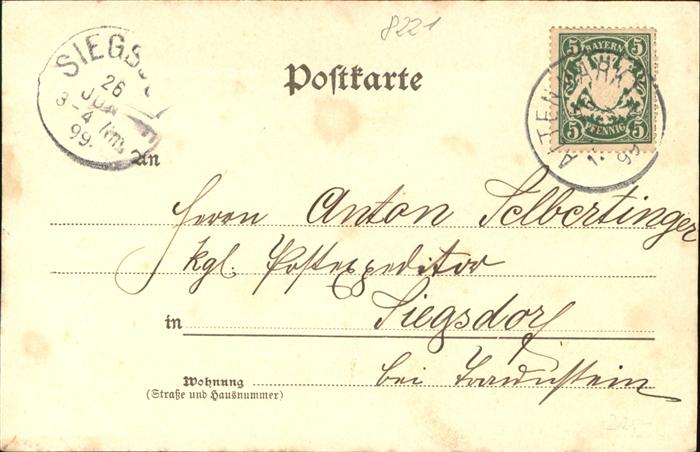 8221
SIEGS
26
JUN
3-4 Nm.
99.
Postkarte
5 BAYERN 5
5 PFENNIG 5
ALTENMARKT
99
An
Herrn Anton Selbertinger
kgl. Postexpeditor
in Siegsdorf
Wohnung bei Traunstein
(Straße und Hausnummer)